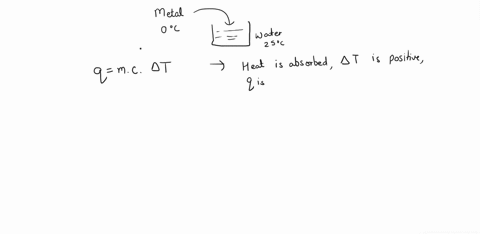 Metal
0°C
Water
25°C
q = m.c. ΔT → Heat is absorbed, ΔT is positive,
q is